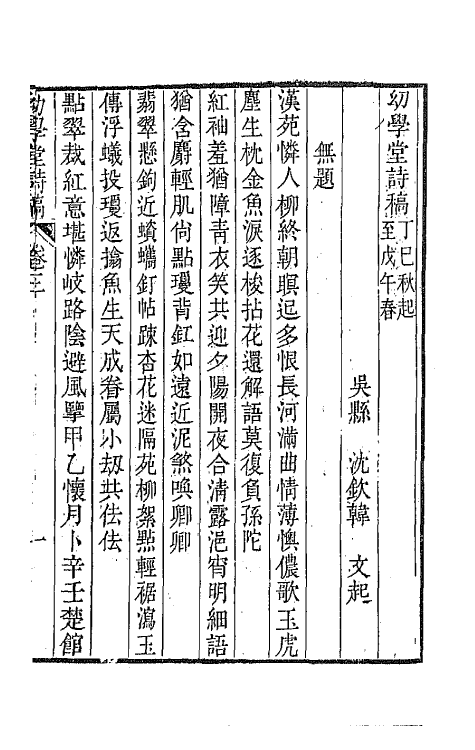 幼學堂詩稿丁巳秋起至戊午春
吳縣 沈欽韓 文起
無題
漢苑憐人柳終朝瞑起多恨長河滿曲情薄懊儂歌玉虎
塵生枕金魚淚逐梭拈花還解語莫復負孫陀
紅袖羞猶障靑衣笑共迎夕陽開夜合清露浥宵明細語
猶含麝輕肌尙點瓊背釭如遠近泥煞喚卿卿
翡翠懸鉤近蟾蠵釘帖疎杏花迷隔苑柳絮㸃輕裾瀉玉
傳浮蟻投瓊返獪魚生天成眷屬小劫共佉佉
點翠裁紅意堪憐岐路陰避風擘甲乙懷月卜辛壬楚館
幼學堂詩稿 卷三 一